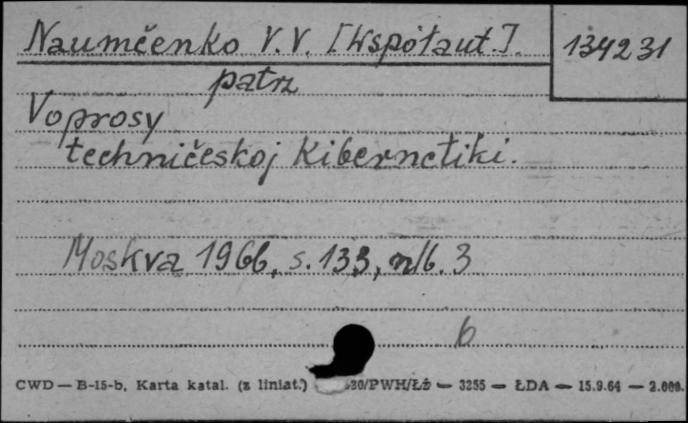 Naumčenko V.V. [Współaut.]. 134231
patrz
Voprosy
techničeskoj Kibernetiki.
Moskva 1966, s. 133, nlb. 3
b
CWD — B-15-b, Karta katal. (z liniat.) 20/PWH/ŁŻ — 3255 — ŁDA — 15.9.64 — 2.000.